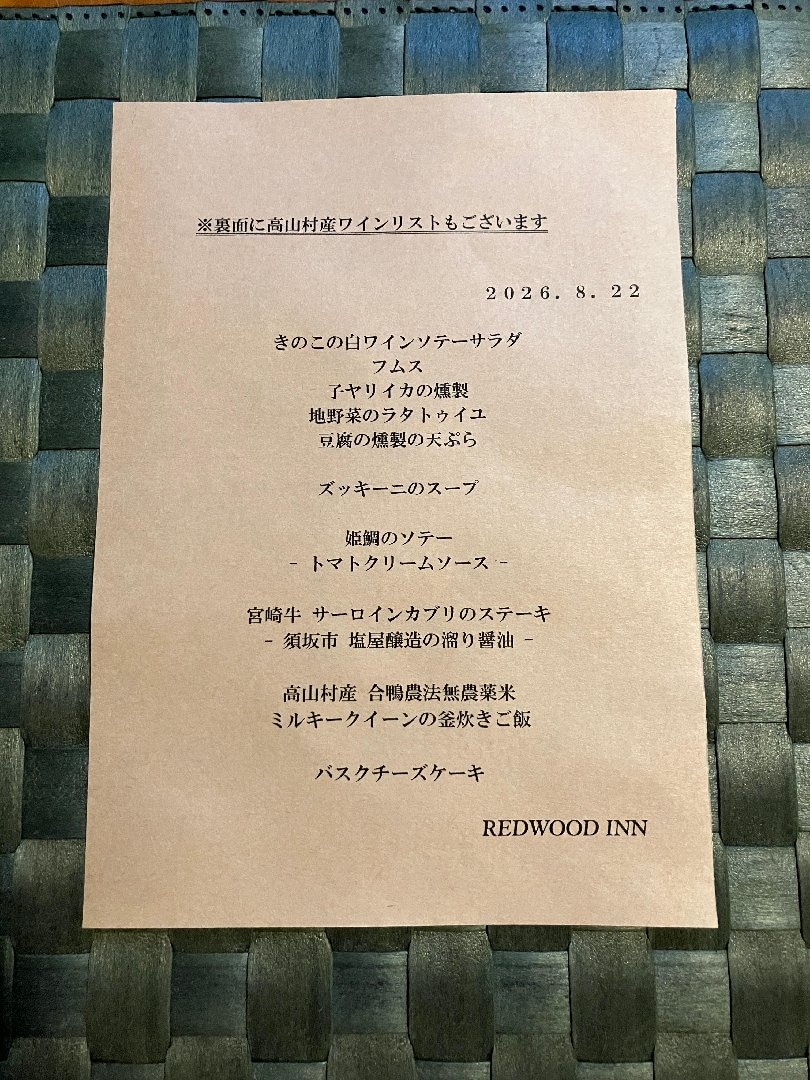 ※裏面に高山村産ワインリストもございます
２０２６．８．２２
きのこの白ワインソテーサラダ
フムス
子ヤリイカの燻製
地野菜のラタトゥイユ
豆腐の燻製の天ぷら
ズッキーニのスープ
姫鯛のソテー
- トマトクリームソース -
宮崎牛 サーロインカブリのステーキ
- 須坂市 塩屋醸造の溜り醤油 -
高山村産 合鴨農法無農薬米
ミルキークイーンの釜炊きご飯
バスクチーズケーキ
REDWOOD INN